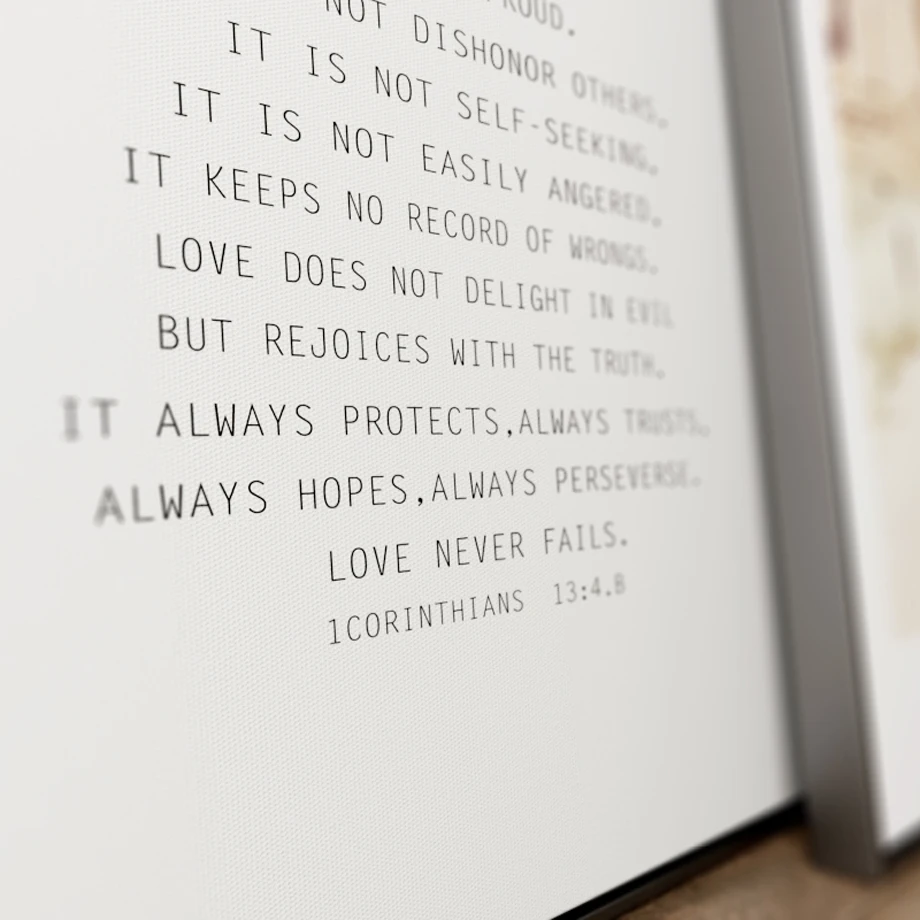 PROUD.
NOT DISHONOR OTHERS.
IT IS NOT SELF-SEEKING.
IT IS NOT EASILY ANGERED.
IT KEEPS NO RECORD OF WRONGS.
LOVE DOES NOT DELIGHT IN EVIL
BUT REJOICES WITH THE TRUTH.
IT ALWAYS PROTECTS,ALWAYS TRUSTS.
ALWAYS HOPES,ALWAYS PERSEVERSE.
LOVE NEVER FAILS.
1CORINTHIANS 13:4.8